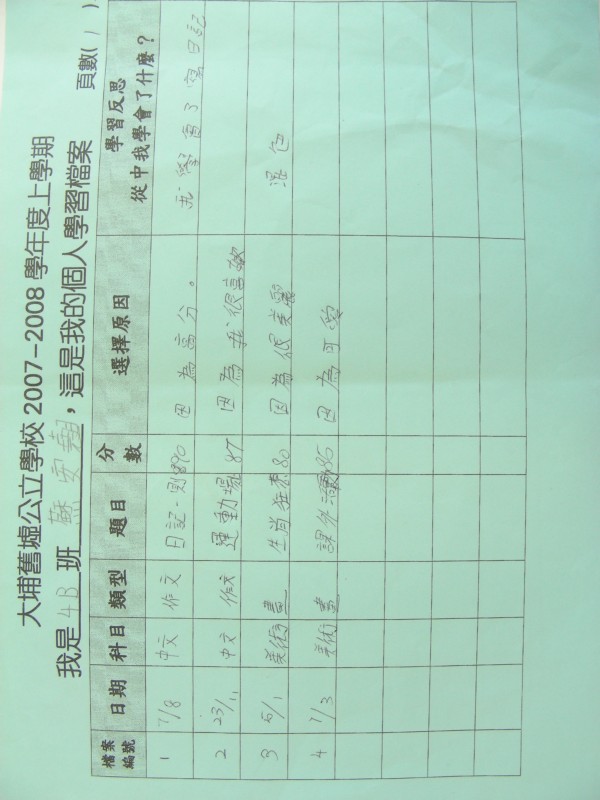 大埔舊墟公立學校 2007-2008 學年度上學期
我是 4B 班 蘇 ，這是我的個人學習檔案 頁數( 1 )
檔案編號 日期 科目 類型 題目 分數 選擇原因 學習反思 從中我學會了什麼？
1 7/8 中文 作文 日記一則 890 因為高分。 我學會了寫日記
2 23/11 中文 作文 運動場 87 因為我很喜歡
3 5/1 美術 畫 生肖 80 因為很美麗 混色
4 7/3 美術 畫 課外活動 86 因為可愛